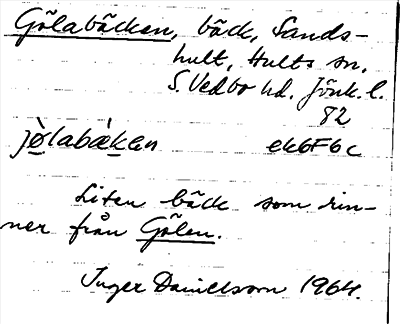 Gölabäcken, bäck, Sands-
hult, Hults sn,
S. Vedbo hd. Jönk. l.
82
jö̀labäkən ek6F6c
Liten bäck som rin-
ner från Gölen.
Inger Danielsson 1964.